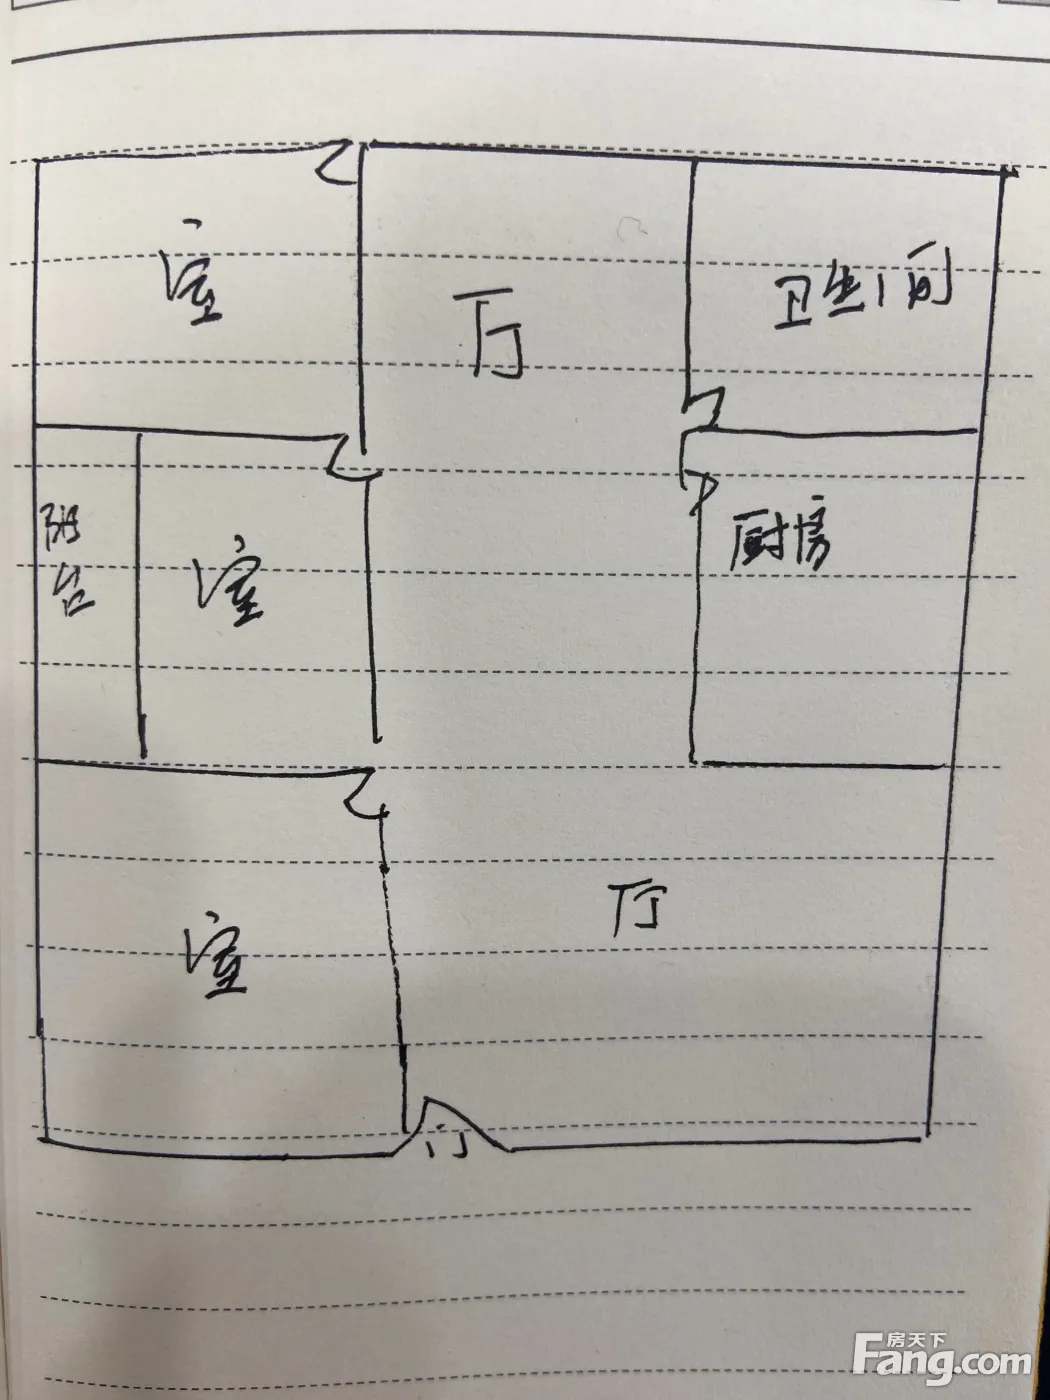 室
厅
卫生间
阳台
室
厨房
室
厅
门
房天下
Fang.com